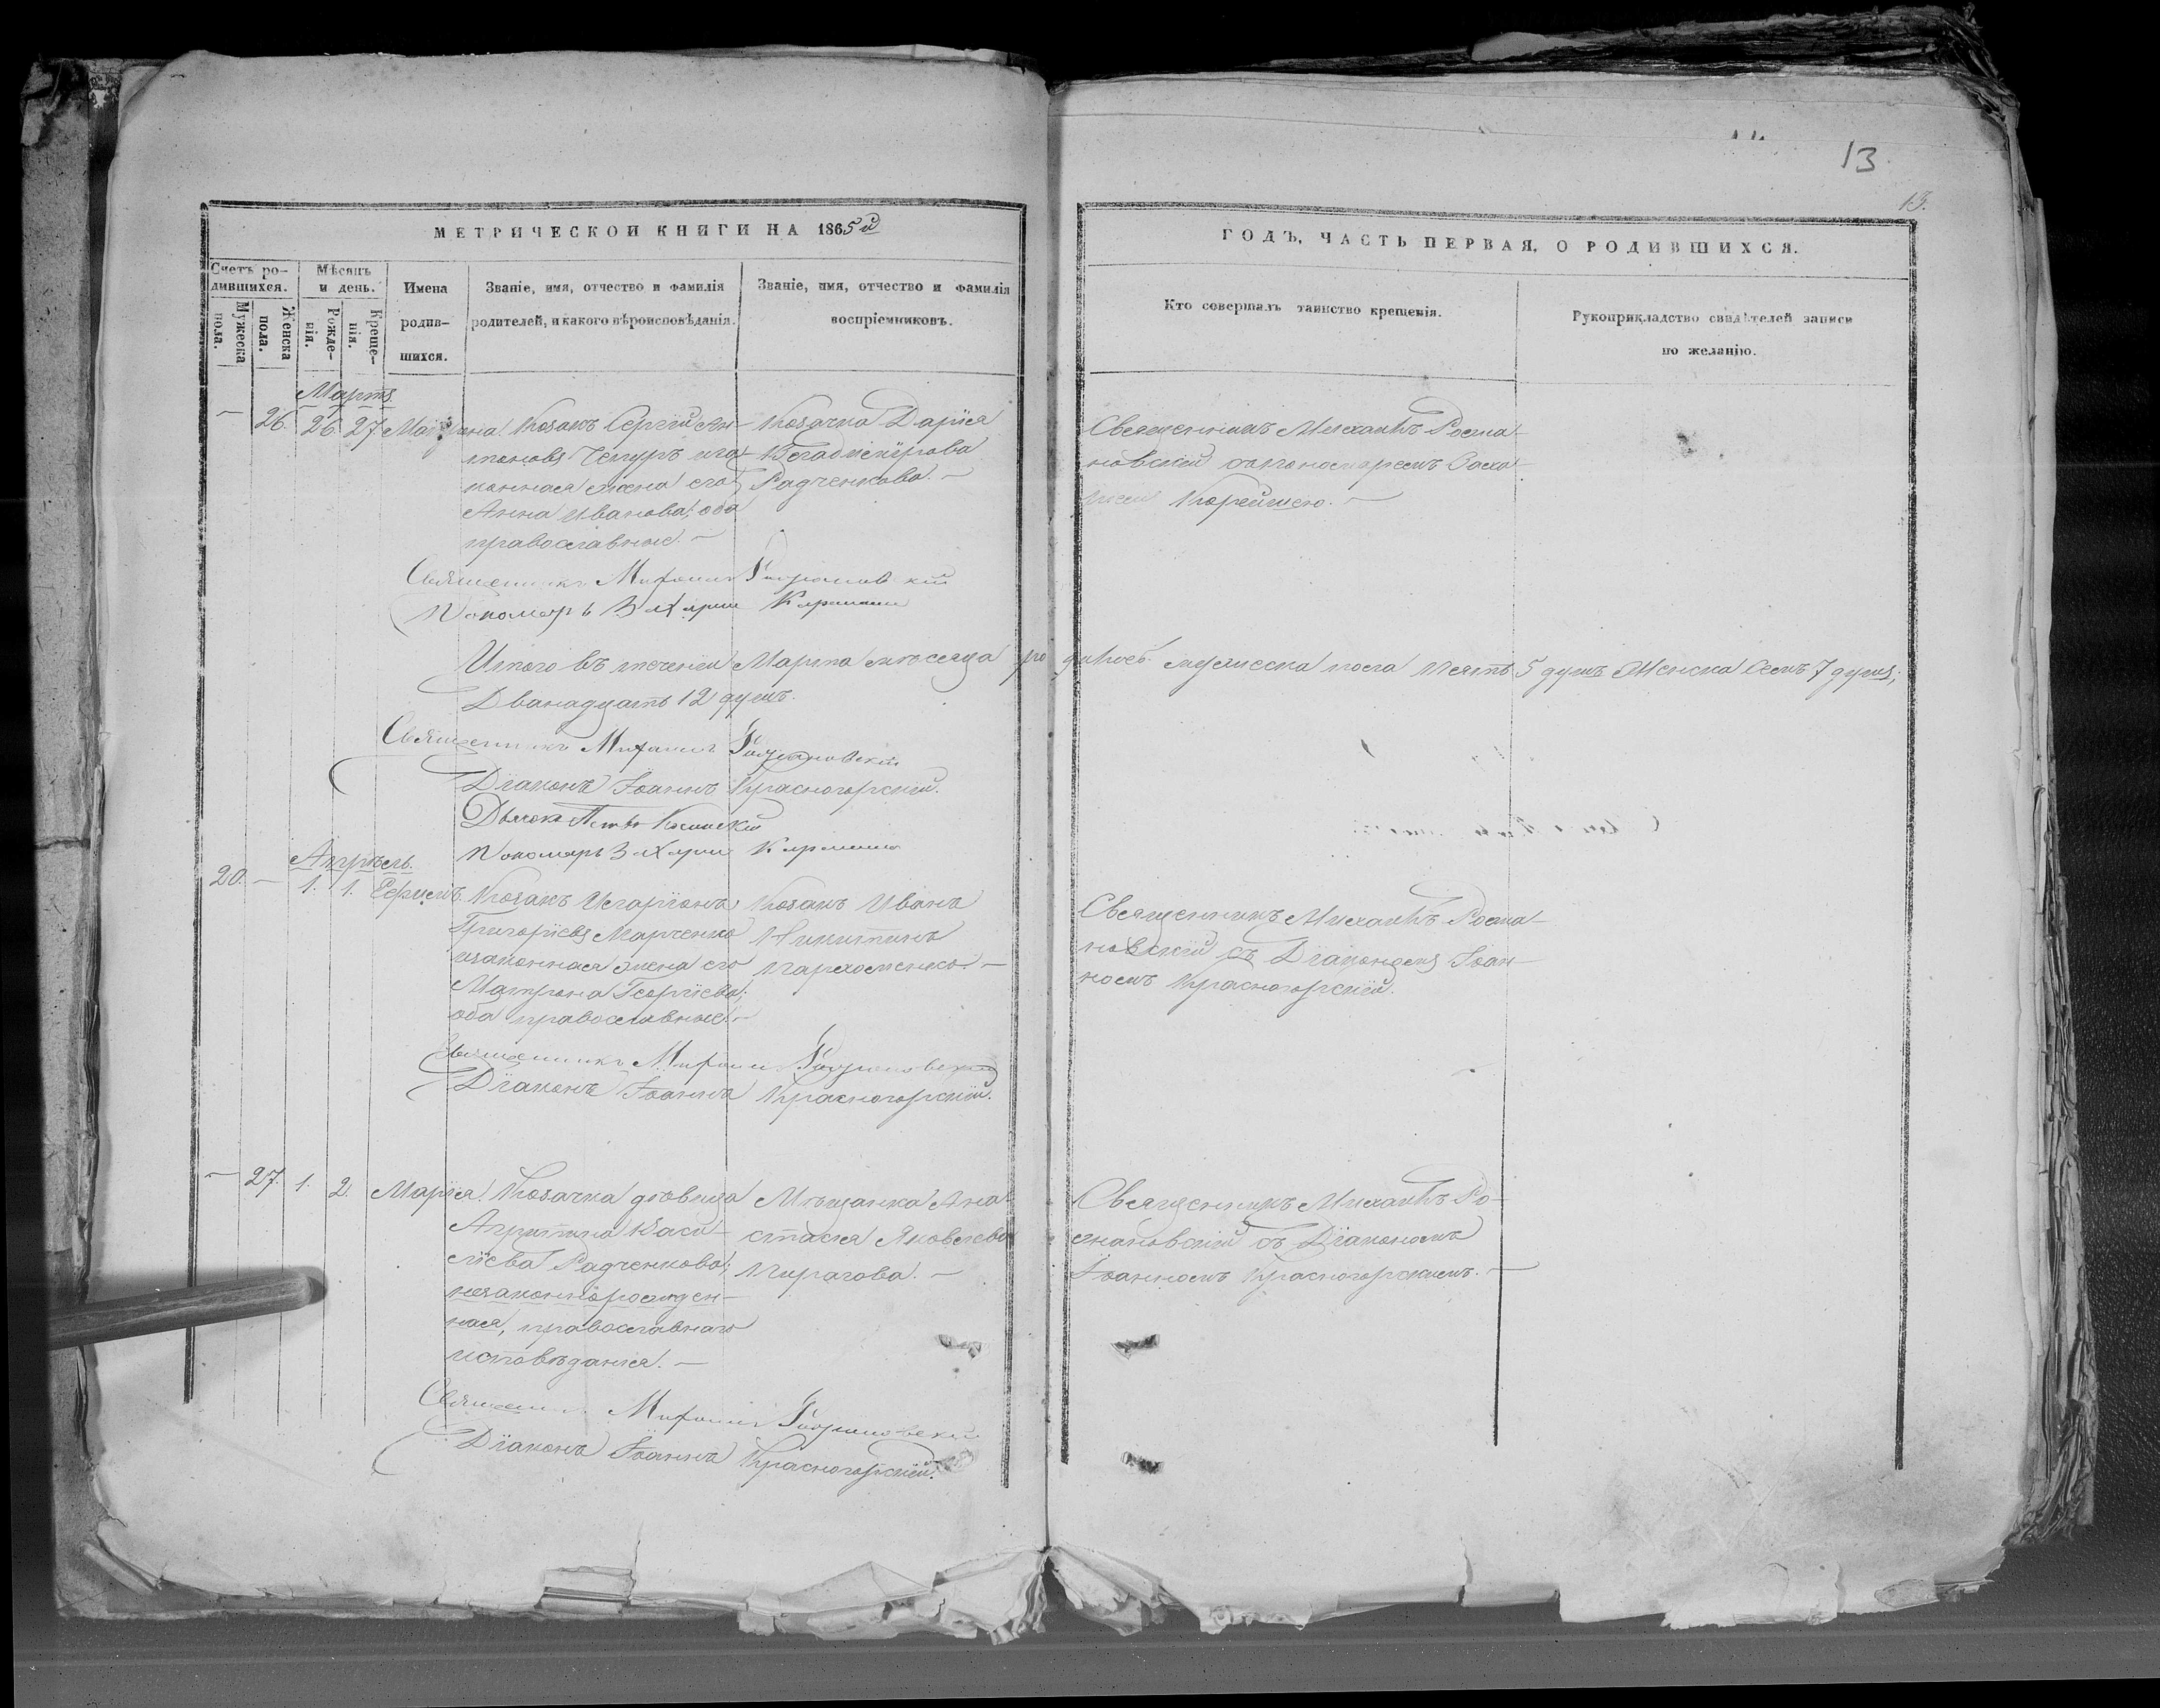 13
13.
МЕТРИЧЕСКОЙ КНИГИ НА 1865й
ГОДЪ, ЧАСТЬ ПЕРВАЯ, О РОДИВШИХСЯ.
Счетъ ро-
дившихся.
Мужеска
пола.
Женска
пола.
Мѣсяцъ
и день.
Рожде-
нія.
Креще-
нія.
Имена
родив-
шихся.
Званіе, имя, отчество и фамилія
родителей, и какого вѣроисповѣданія.
Званіе, имя, отчество и фамилія
воспріемниковъ.
Кто совершалъ таинство крещенія.
Рукоприкладство свидѣтелей записи
по желанію.
Мартъ
26. 26. 27.
Козакъ Сергій Ан-
тоновъ Чепуръ и за-
конная жена его
Анна Иванова; оба
православные. —
Козачка Дарія
Радченкова. —
Священникъ Михаилъ Рома-
новскій съ пономаремъ Заха-
Священникъ Михаилъ Романовскій
Пономарь Захарий
Итого въ теченіи Марта мѣсяца родилось мужеска пола пять 5 душъ женска семъ 7 душъ;
Дванадцать 12 душъ.
Священникъ Михаилъ Романовскій
Діаконъ Іоаннъ Красногорскій.
Пономарь Захарий
Апрѣль.
20. — 1. 1. Ефремъ.
Козакъ Иларіонъ
Григоріевъ Марченко
и законная жена его
Матрона Георгіева;
оба православные. —
Козакъ Иванъ
Никитинъ
Пархоменко. —
Священникъ Михаилъ Рома-
новскій съ Діакономъ Іоан-
номъ Красногорскій.
Священникъ Михаилъ Романовскій
Діаконъ Іоаннъ Красногорскій.
— 27. 1. 2. Марія.
Козачка дѣвица
Агриппина Васи-
ліева Радченкова;
незаконнорожден-
ная, православнаго
исповѣданія. —
Мѣщанка Ана-
стасія Яковлева
Пирагова. —
Священникъ Михаилъ Ро-
мановскій съ Діакономъ
Іоанномъ Красногорскимъ. —
Священникъ Михаилъ Романовскій
Діаконъ Іоаннъ Красногорскій.